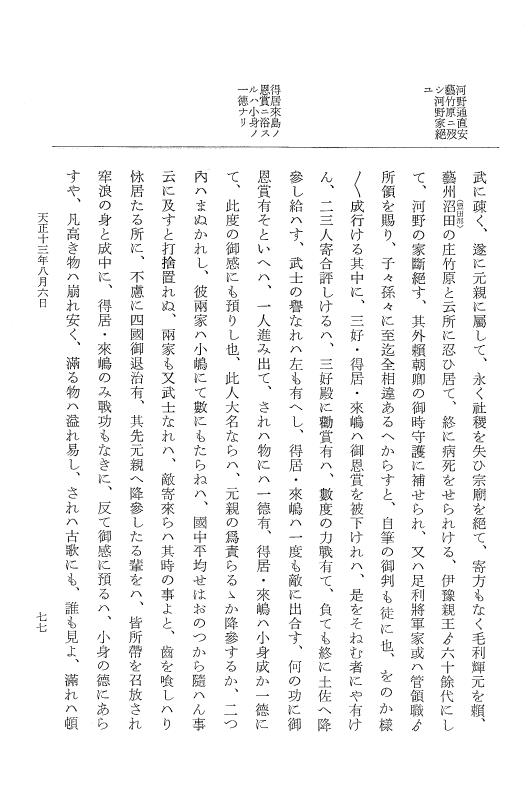 河野通直安
藝竹原ニ歿
シ河野家絕
ユ
得居來島ノ
恩賞ニ浴ス
ルハ小身ノ
一德ナリ
武に疎く、遂に元親に屬して、永く社稷を失ひ宗廟を絕て、寄方もなく毛利輝元を賴、
藝州沼田の庄竹原と云所に忍ひ居て、終に病死をせられける、伊豫親王ゟ六十餘代にし
て、河野の家斷絕す、其外賴朝卿の御時守護に補せられ、又ハ足利將軍家或ハ管領職ゟ
所領を賜り、子々孫々に至迄全相違あるへからすと、自筆の御判も徒に也、をのか樣
〳〵成行ける其中に、三好・得居・來嶋ハ御恩賞を被下けれハ、是をそねむ者にや有け
ん、二三人寄合評しけるハ、三好殿に勸賞有ハ、數度の力戰有て、負ても終に土佐へ降
參し給ハす、武士の譽なれハ左も有へし、得居・來嶋ハ一度も敵に出合す、何の功に御
恩賞有そといへハ、一人進み出て、されハ物にハ一德有、得居・來嶋ハ小身成か一德に
て、此度の御感にも預りし也、此人大名ならハ、元親の爲責らるゝか降參するか、二つ
內ハまぬかれし、彼兩家ハ小嶋にて數にもたらねハ、國中平均せはおのつから隨ハん事
云に及すと打捨置れぬ、兩家も又武士なれハ、敵寄來らハ其時の事よと、齒を喰しハり
怺居たる所に、不慮に四國御退治有、其先元親へ降參したる輩をハ、皆所帶を召放され
窂浪の身と成中に、得居・來嶋のみ戰功もなきに、反て御感に預るハ、小身の德にあら
すや、凡高き物ハ崩れ安く、滿る物ハ溢れ易し、されハ古歌にも、誰も見よ、滿れハ頓
天正十三年八月六日
七七